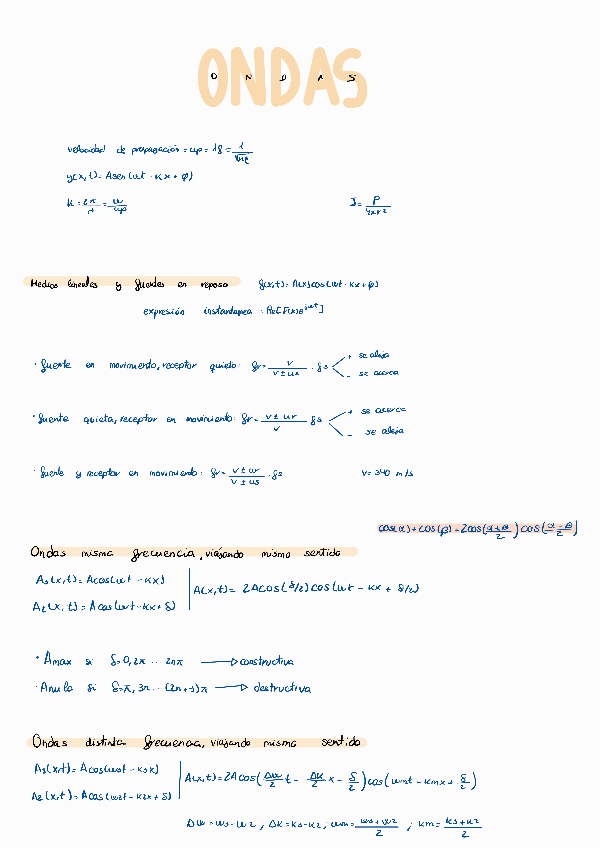 ONDAS
O N D A S
velocidad de propagación = up = λf = 1/√με
y(x,t) = Asen(ωt - kx + φ)
k = 2π/λ = ω/up J = P/4πr²
Medios lineales y fuentes en reposo f(x,t) = A(x)cos(ωt - kx + φ)
expresión instantánea : Re[F(x)e^jωt]
· fuente en movimiento, receptor quieto: fr = v/v ± us · fs + se aleja - se acerca
· fuente quieta, receptor en movimiento: fr = v ± ur/v fs + se acerca - se aleja
· fuente y receptor en movimiento: fr = v ± ur/v ± us · fs v = 340 m/s
cos(α) + cos(β) = 2cos(α+β/2) cos(α-β/2)
Ondas misma frecuencia, viajando mismo sentido
A1(x,t) = Acos(ωt - kx)
A2(x,t) = Acos(ωt - kx + δ) A(x,t) = 2Acos(δ/2)cos(ωt - kx + δ/2)
· Amax si δ=0, 2π ... 2nπ → constructiva
· Anula si δ=π, 3π ... (2n+1)π → destructiva
Ondas distinta frecuencia, viajando mismo sentido
A1(x,t) = Acos(ω1t - k1x)
A2(x,t) = Acos(ω2t - k2x + δ) A(x,t) = 2Acos(Δω/2 t - Δk/2 x - δ/2) cos(ωmt - kmx + δ/2)
Δω = ω1 - ω2 , Δk = k1 - k2 , ωm = ω1+ω2/2 ; km = k1+k2/2